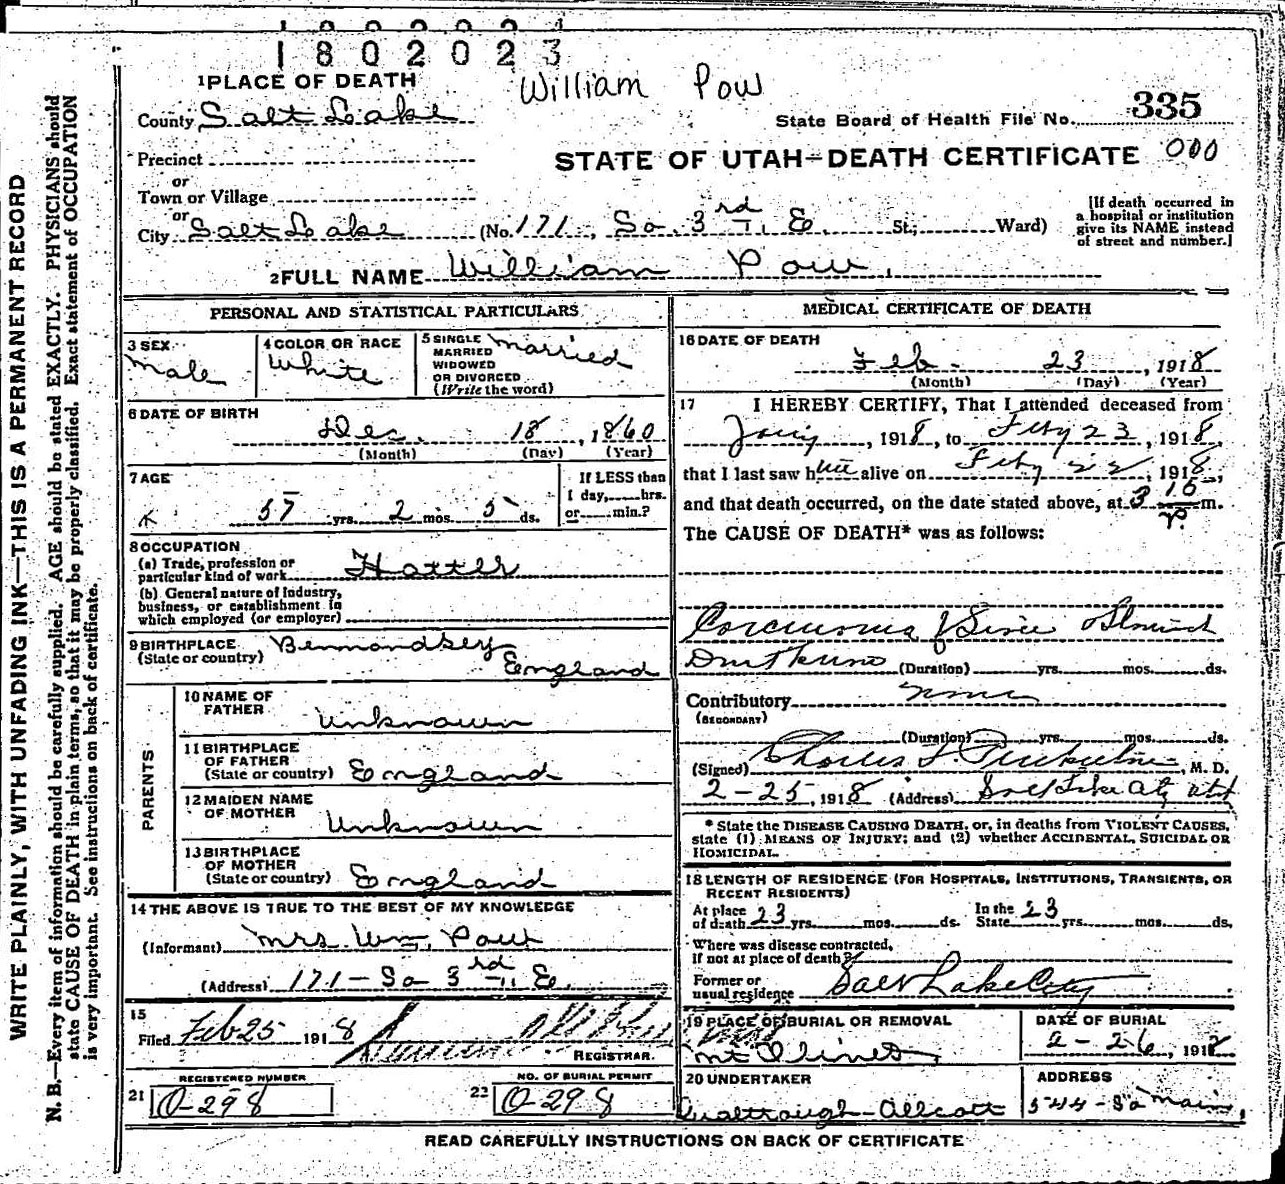 1802023
1 PLACE OF DEATH William Pow
County Salt Lake
State Board of Health File No. 335
Precinct
STATE OF UTAH—DEATH CERTIFICATE 000
or
Town or Village
or
City Salt Lake (No. 171, So. 3rd E St.; Ward)
[If death occurred in
a hospital or institution
give its NAME instead
of street and number.]
2 FULL NAME William Pow.
PERSONAL AND STATISTICAL PARTICULARS
3 SEX Male
4 COLOR OR RACE White
5 SINGLE married
MARRIED
WIDOWED
OR DIVORCED
(Write the word)
6 DATE OF BIRTH
Dec. 18, 1860
(Month) (Day) (Year)
7 AGE
57 yrs. 2 mos. 5 ds.
If LESS than
1 day, hrs.
or min.?
8 OCCUPATION
(a) Trade, profession or
particular kind of work Hatter
(b) General nature of industry,
business, or establishment in
which employed (or employer)
9 BIRTHPLACE Bermondsey
(State or country) England
PARENTS
10 NAME OF
FATHER Unknown
11 BIRTHPLACE
OF FATHER
(State or country) England
12 MAIDEN NAME
OF MOTHER Unknown
13 BIRTHPLACE
OF MOTHER
(State or country) England
14 THE ABOVE IS TRUE TO THE BEST OF MY KNOWLEDGE
(Informant) Mrs. Wm. Pow
(Address) 171-So 3rd E.
15
Filed Feb 25 1918
REGISTRAR.
REGISTERED NUMBER
21 O-298
NO. OF BURIAL PERMIT
22 O-298
MEDICAL CERTIFICATE OF DEATH
16 DATE OF DEATH
Feb. 23, 1918
(Month) (Day) (Year)
17 I HEREBY CERTIFY, That I attended deceased from
, 1918, to Feby 23, 1918,
that I last saw him alive on Feby 22, 1918,
and that death occurred, on the date stated above, at 3 10 P. m.
The CAUSE OF DEATH* was as follows:
Carcinoma of Liver Stomach
(Duration) yrs. mos. ds.
Contributory none
(SECONDARY)
(Duration) yrs. mos. ds.
(Signed) Charles, M. D.
2-25, 1918 (Address) Salt Lake City Utah
* State the DISEASE CAUSING DEATH, or, in deaths from VIOLENT CAUSES,
state (1) MEANS OF INJURY; and (2) whether ACCIDENTAL, SUICIDAL OR
HOMICIDAL.
18 LENGTH OF RESIDENCE (FOR HOSPITALS, INSTITUTIONS, TRANSIENTS, OR
RECENT RESIDENTS)
At place of death 23 yrs. mos. ds. In the State 23 yrs. mos. ds.
Where was disease contracted,
if not at place of death?
Former or
usual residence Salt Lake City
19 PLACE OF BURIAL OR REMOVAL
Mt Olivet
DATE OF BURIAL
2-26, 1918
20 UNDERTAKER
ADDRESS
544-So Main,
READ CAREFULLY INSTRUCTIONS ON BACK OF CERTIFICATE
WRITE PLAINLY, WITH UNFADING INK—THIS IS A PERMANENT RECORD
N. B.—Every item of information should be carefully supplied. AGE should be stated EXACTLY. PHYSICIANS should
state CAUSE OF DEATH in plain terms, so that it may be properly classified. Exact statement of OCCUPATION
is very important. See instructions on back of certificate.